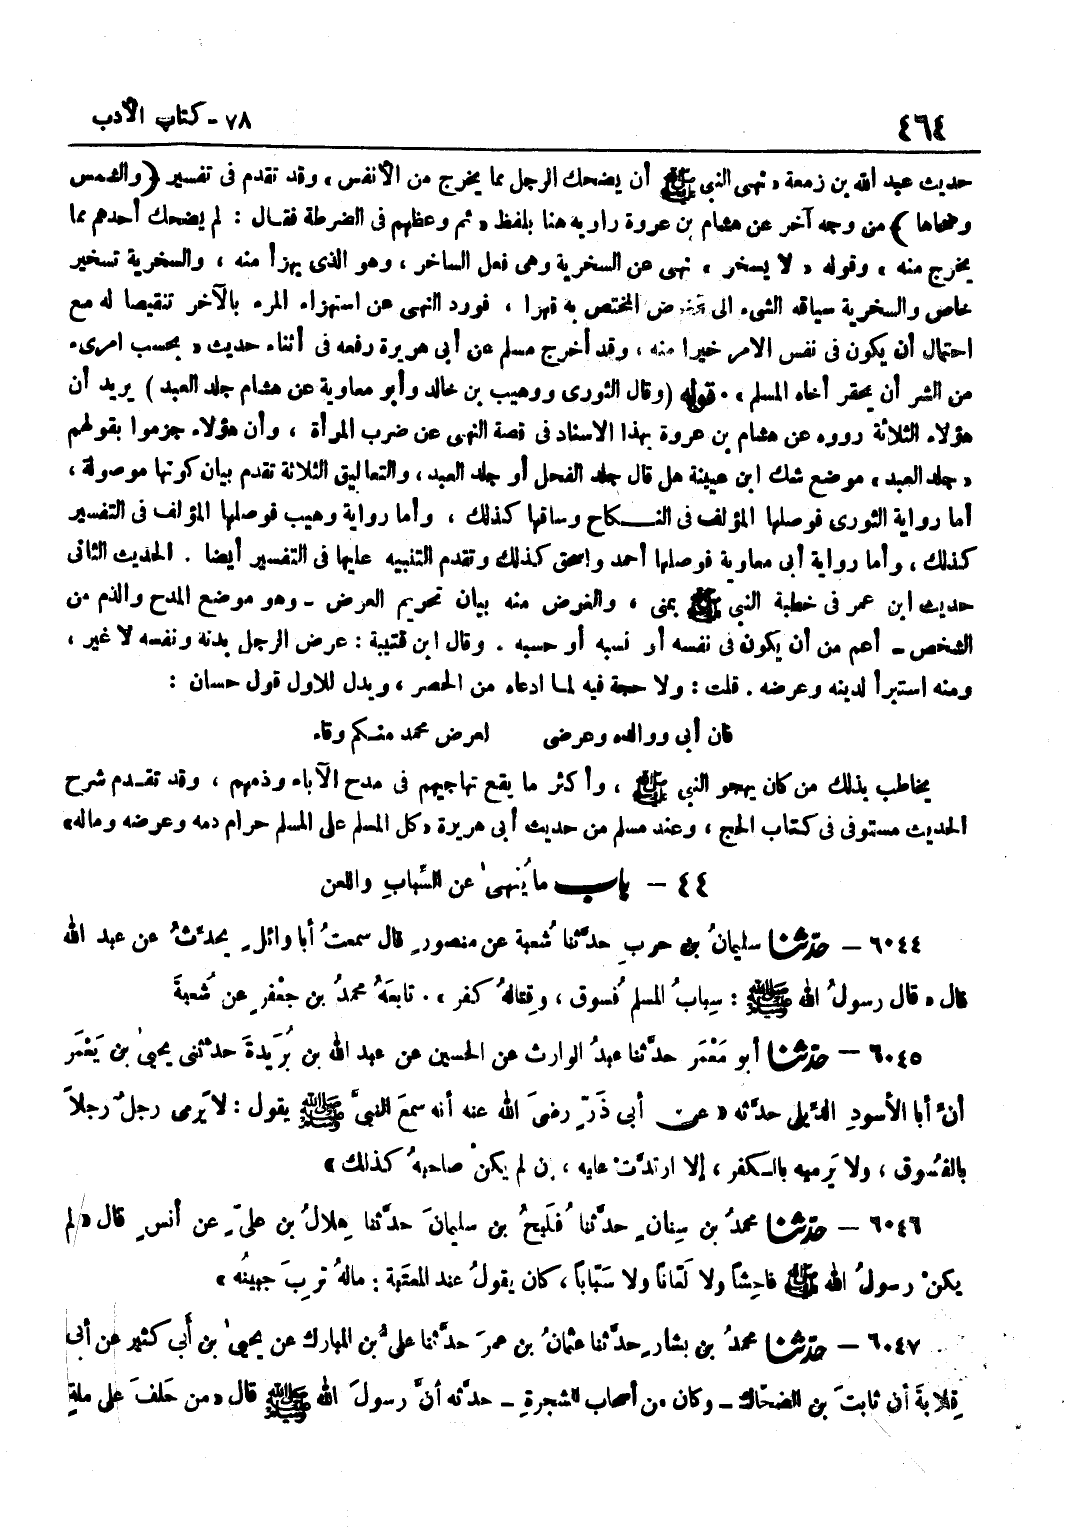 ٤٦٤
٧٨ - كتاب الأدب
حديث عبد الله بن زمعة « نهى النبي ﷺ أن يضحك الرجل مما يخرج من الأنفس » وقد تقدم فى تفسير ( والشمس
وضحاها ) من وجه آخر عن هشام بن عروة راويه هنا بلفظ « ثم وعظهم فى الضرطة فقال : لم يضحك أحدهم مما
يخرج منه » وقوله « لا يسخر » نهى عن السخرية وهى فعل الساخر ، وهو الذى يهزأ منه ، والسخرية تسخير
خاص والسخرية سياقه الشىء الى الغرض المختص به قهرا ، فورد النهى عن استهزاء المرء بالآخر تنقيصا له مع
احتمال أن يكون فى نفس الامر خيرا منه ، وقد أخرج مسلم عن أبى هريرة رفعه فى أثناء حديث « بحسب امرىء
من الشر أن يحقر أخاه المسلم » . قوله ( وقال الثورى ووهيب بن خالد وأبو معاوية عن هشام جلد العبد ) يريد أن
هؤلاء الثلاثة رووه عن هشام بن عروة بهذا الاسناد فى قصة النهى عن ضرب المرأة ، وأن هؤلاء جزموا بقولهم
« جلد العبد » موضع شك ابن عيينة هل قال جلد الفحل أو جلد العبد ، والتعاليق الثلاثة تقدم بيان كونها موصولة ،
أما رواية الثورى فوصلها المؤلف فى النكاح وساقها كذلك ، وأما رواية وهيب فوصلها المؤلف فى التفسير
كذلك ، وأما رواية أبى معاوية فوصلها أحمد واسحق كذلك وتقدم التنبيه عليها فى التفسير أيضا . الحديث الثانى
حديث ابن عمر فى خطبة النبي ﷺ بمنى ، والغرض منه بيان تحريم العرض - وهو موضع المدح والذم من
الشخص - أعم من أن يكون فى نفسه أو نسبه أو حسبه . وقال ابن قتيبة : عرض الرجل بدنه ونفسه لا غير ،
ومنه استبرأ لدينه وعرضه . قلت : ولا حجة فيه لما ادعاه من الحصر ، ويدل للاول قول حسان :
فان أبى ووالده وعرضى لعرض محمد منكم وقاء
يخاطب بذلك من كان يهجو النبي ﷺ ، وأكثر ما يقع تهاجيهم فى مدح الآباء وذمهم ، وقد تقدم شرح
الحديث مستوفى فى كتاب الحج ، وعند مسلم من حديث أبى هريرة « كل المسلم على المسلم حرام دمه وعرضه وماله »
٤٤ - باب ما يُنهىٰ عن السِّبابِ واللعن
٦٠٤٤ - حدّثنا سليمانُ بن حربٍ حدَّثنا شُعبة عن منصورٍ قال سمعتُ أبا وائلٍ يحدثُ عن عبد الله
قال « قال رسولُ الله ﷺ : سِبابُ المسلم فُسوق ، وقِتالهُ كفر » . تابعَهُ محمدُ بن جعْفرٍ عن شُعبةَ
٦٠٤٥ - حدّثنا أبو مَعْمَر حدَّثنا عبدُ الوارث عن الحسين عن عبد الله بن بُرَيدةَ حدثنى يحيىٰ بن يَعْمَر
أنَّ أبا الأسودِ الدِّيلى حدَّثه « عن أبى ذَرٍّ رضىَ الله عنه أنه سمعَ النبيَّ ﷺ يقول : لا يَرمى رجلٌ رجلاً
بالفُسوق ، ولا يَرميه بالكفر ، إلا ارتدَّت عليه ، إن لم يكنْ صاحبهُ كذلك »
٦٠٤٦ - حدّثنا محمدُ بن سِنانٍ حدَّثنا فُلَيحُ بن سليمانَ حدَّثنا هِلالُ بن علىٍّ عن أنسٍ قال « لم
يكنْ رسولُ الله ﷺ فاحِشاً ولا لَعّاناً ولا سَبّاباً ، كان يقولُ عند المعتَبة : مالهُ تربَ جبينُه »
٦٠٤٧ - حدّثنا محمدُ بن بشارٍ حدَّثنا عثمانُ بن عمرَ حدَّثنا علىُّ بن المبارك عن يحيىٰ بن أبي كثير عن أبى
قِلابةَ أن ثابتَ بن الضحّاك - وكان من أصحاب الشجرةِ - حدَّثه أنَّ رسولَ الله ﷺ قال « من حَلفَ على ملةٍ